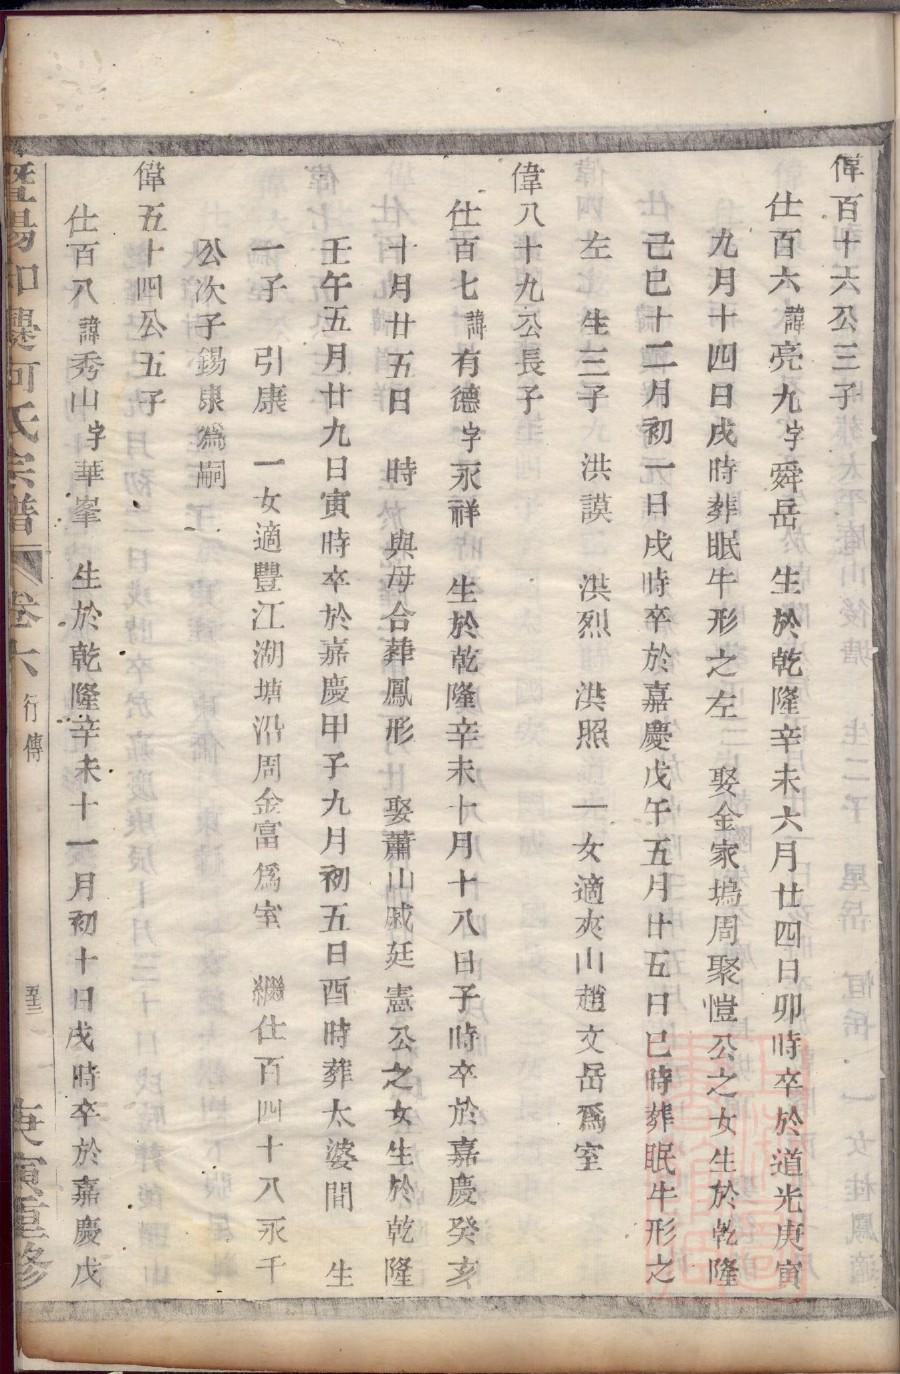 偉百十六公三子
仕百六諱亮九字舜岳 生於乾隆辛未六月廿四日卯時卒於道光庚寅
九月十四日戌時葬眠牛形之左 娶金家塢周聚愷公之女生於乾隆
己巳十二月初一日戌時卒於嘉慶戊午五月廿五日巳時葬眠牛形之
左 生三子 洪謨 洪烈 洪照 一女適夾山趙文岳爲室
偉八十九公長子
仕百七諱有德字永祥 生於乾隆辛未十月十八日子時卒於嘉慶癸亥
十月廿五日 時 與母合葬鳳形 娶蕭山戚廷憲公之女生於乾隆
壬午五月廿九日寅時卒於嘉慶甲子九月初五日酉時葬太婆間 生
一子 引康 一女適豐江湖塘沿周金富爲室 繼仕百四十八永千
公次子錫康爲嗣
偉五十四公五子
仕百八諱秀山字華峯 生於乾隆辛未十一月初十日戌時卒於嘉慶戊
宗譜 卷六 行傳 庚寅重修